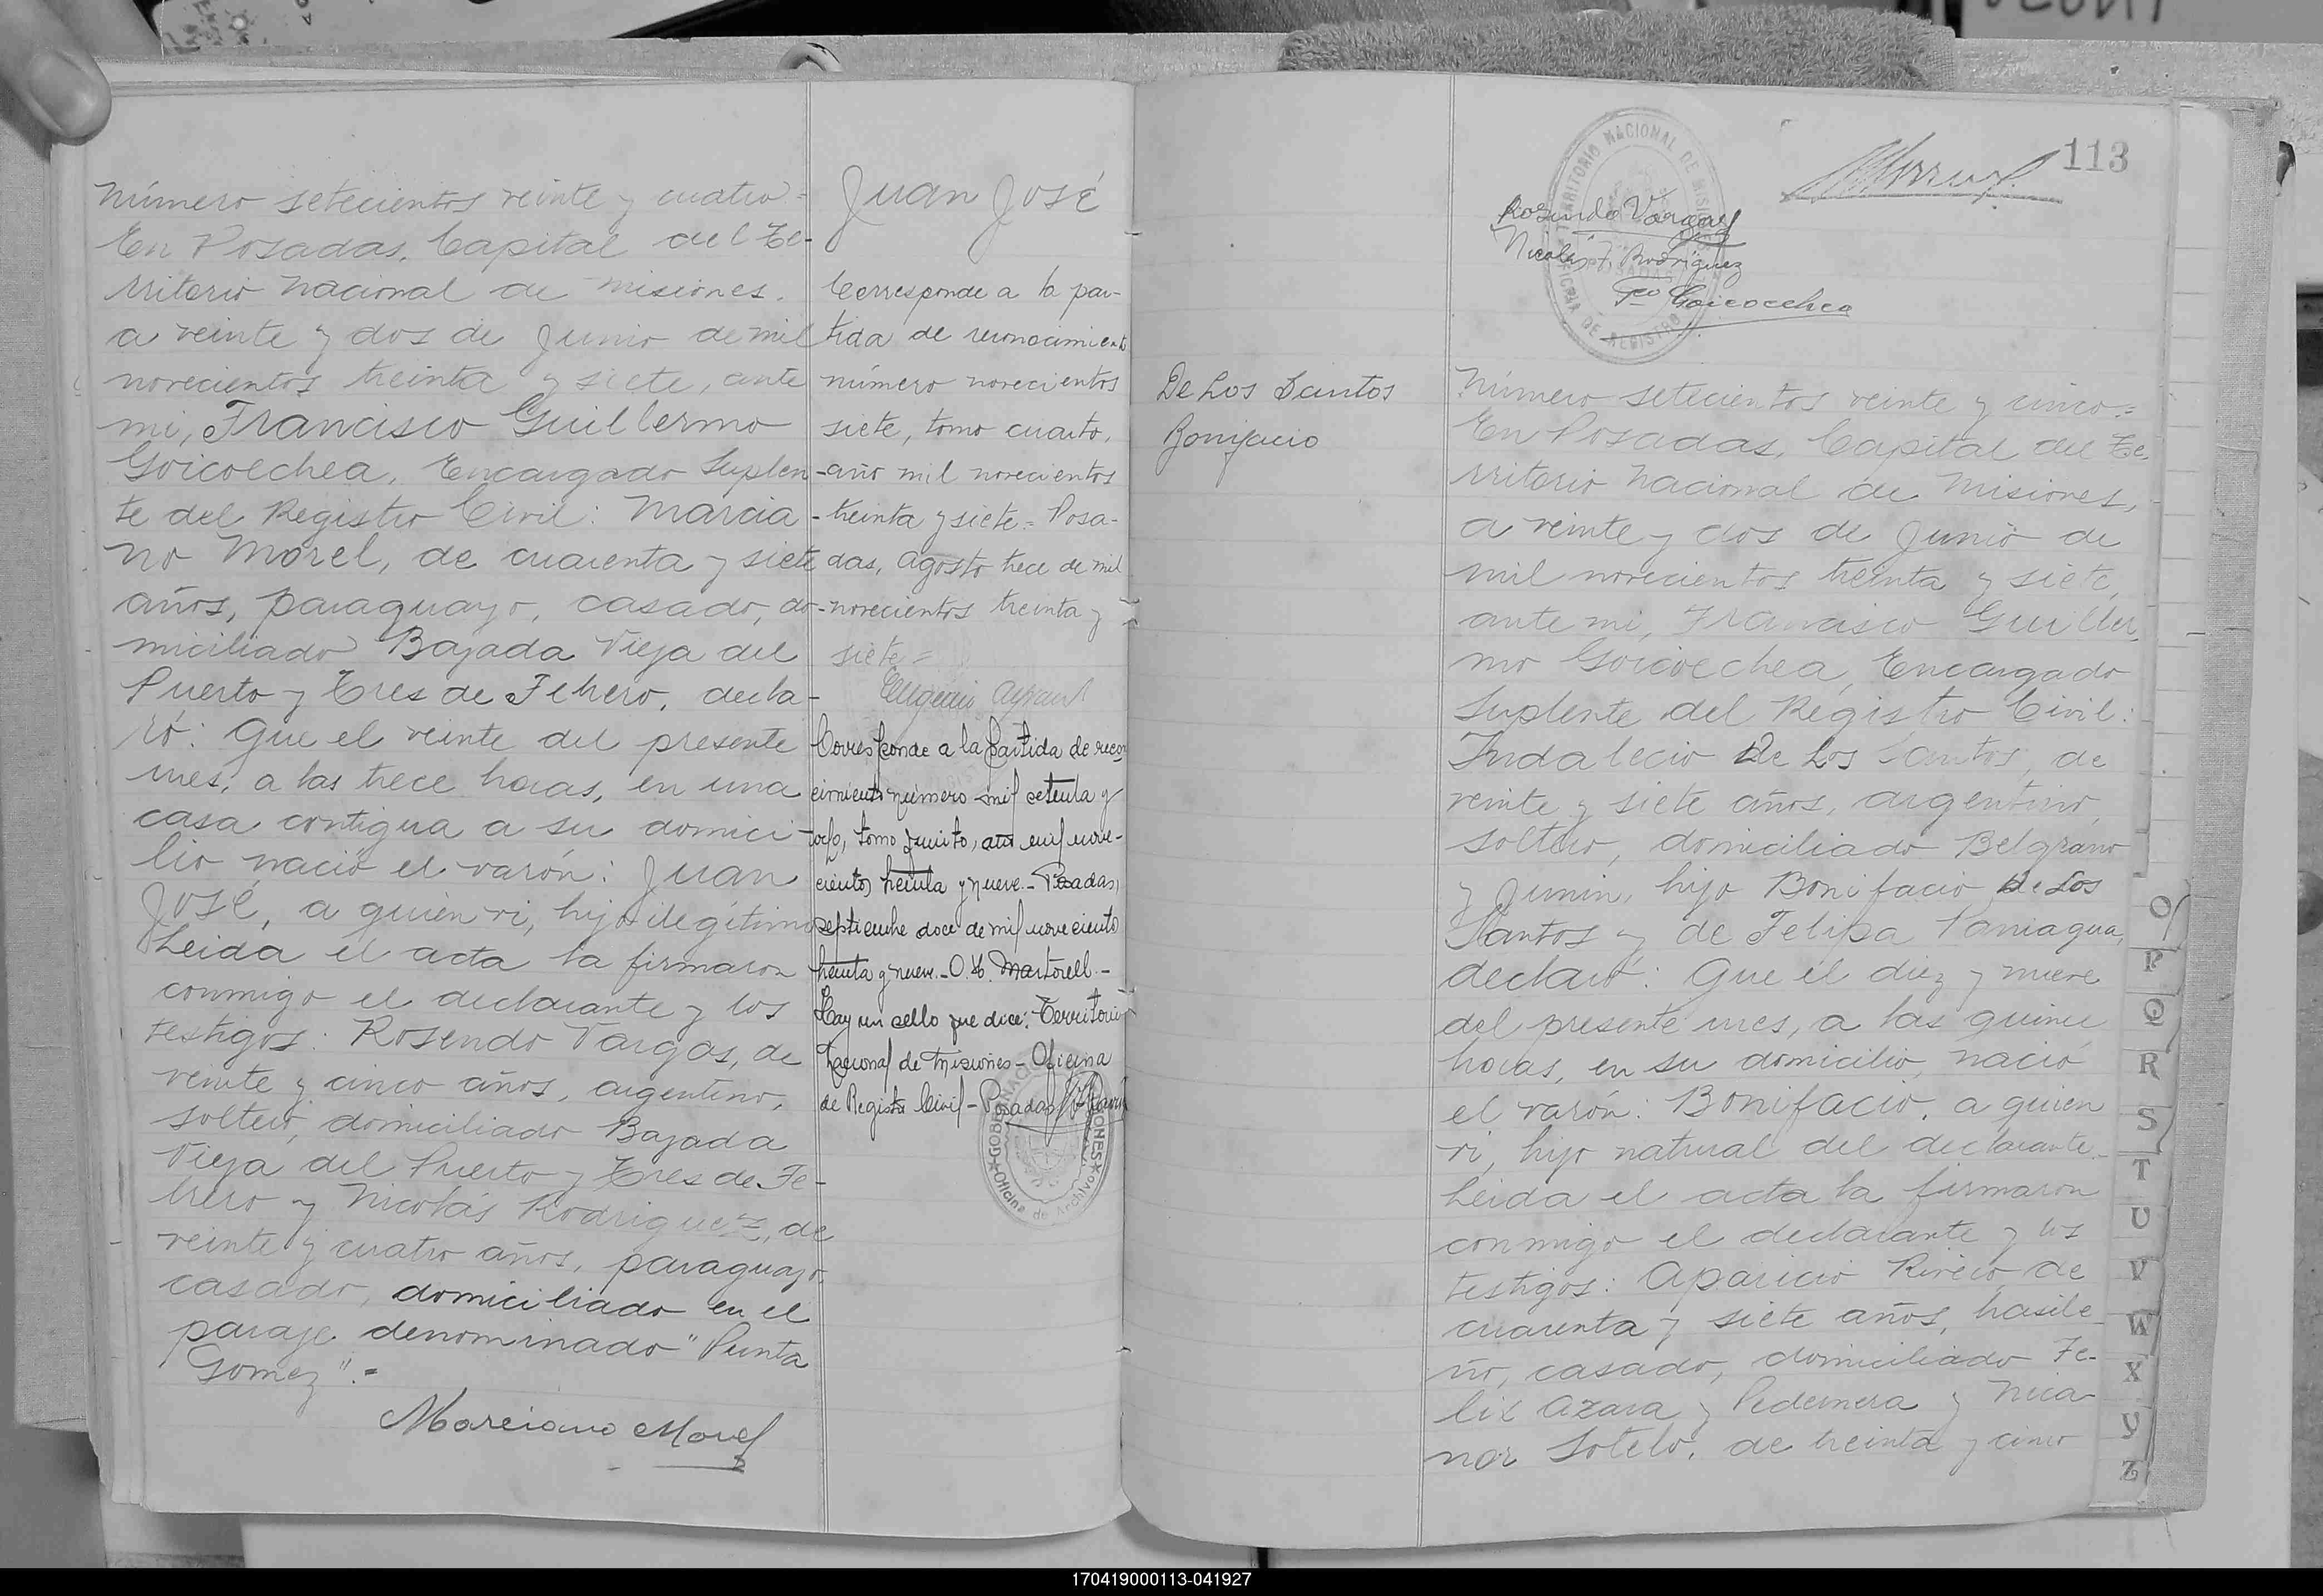 Número setecientos veinte y cuatro =
En Posadas, Capital del Te-
rritorio Nacional de Misiones,
a veinte y dos de Junio de mil
novecientos treinta y siete, ante
mi, Francisco Guillermo
Goicoechea, Encargado Suplen-
te del Registro Civil: Marcia-
no Morel, de cuarenta y siete
años, paraguayo, casado, do-
miciliado Bajada Vieja del
Puerto y Tres de Febrero, decla-
ró: Que el veinte del presente
mes, a las trece horas, en una
casa contigua a su domici-
lio nació el varón: Juan
José, a quien vi, hijo ilegítimo
Leida el acta la firmaron
conmigo el declarante y los
testigos: Rosendo Vargas, de
veinte y cinco años, argentino,
soltero, domiciliado Bajada
Vieja del Puerto y Tres de Fe-
brero y Nicolás Rodriguez, de
veinte y cuatro años, paraguayo,
casado, domiciliado en el
paraje denominado "Punta
Gomez".=
Marciano Morel
Juan José
Corresponde a la par-
tida de reconocimiento
número novecientos
siete, tomo cuarto,
año mil novecientos
treinta y siete = Posa-
das, Agosto trece de mil
novecientos treinta y
siete =
Eugenio
Corresponde a la partida de recono-
cimiento número mil setenta y
ocho, tomo quinto, año mil nove-
cientos treinta y nueve.- Posadas,
septiembre doce de mil novecientos
treinta y nueve.- O. H. Martorell.-
Hay un sello que dice: Territorio
Nacional de Misiones - Oficina
de Registro Civil - Posadas
GOBERNACION MISIONES
Oficina de Archivo
113
TERRITORIO NACIONAL DE MISIONES
POSADAS
OFICINA DE REGISTRO
Rosendo Vargas
Nicolas F. Rodriguez
Fco Goicoechea
De Los Santos
Bonifacio
Número setecientos veinte y cinco.=
En Posadas, Capital del Te-
rritorio Nacional de Misiones,
a veinte y dos de Junio de
mil novecientos treinta y siete,
ante mi, Francisco Guiller-
mo Goicoechea, Encargado
Suplente del Registro Civil:
Indalecio De Los Santos, de
veinte y siete años, argentino,
soltero, domiciliado Belgrano
y Junin, hijo Bonifacio De Los
Santos y de Felipa Paniagua,
declaró: Que el diez y nueve
del presente mes, a las quince
horas, en su domicilio, nació
el varón: Bonifacio, a quien
vi, hijo natural del declarante.-
Leida el acta la firmaron
conmigo el declarante y los
testigos: Aparicio Rivero, de
cuarenta y siete años, brasile-
ño, casado, domiciliado Fe-
lix Azara y Pedernera y Nica-
nor Sotelo, de treinta y cinco
O
P
Q
R
S
T
U
V
W
X
Y
Z
170419000113-041927